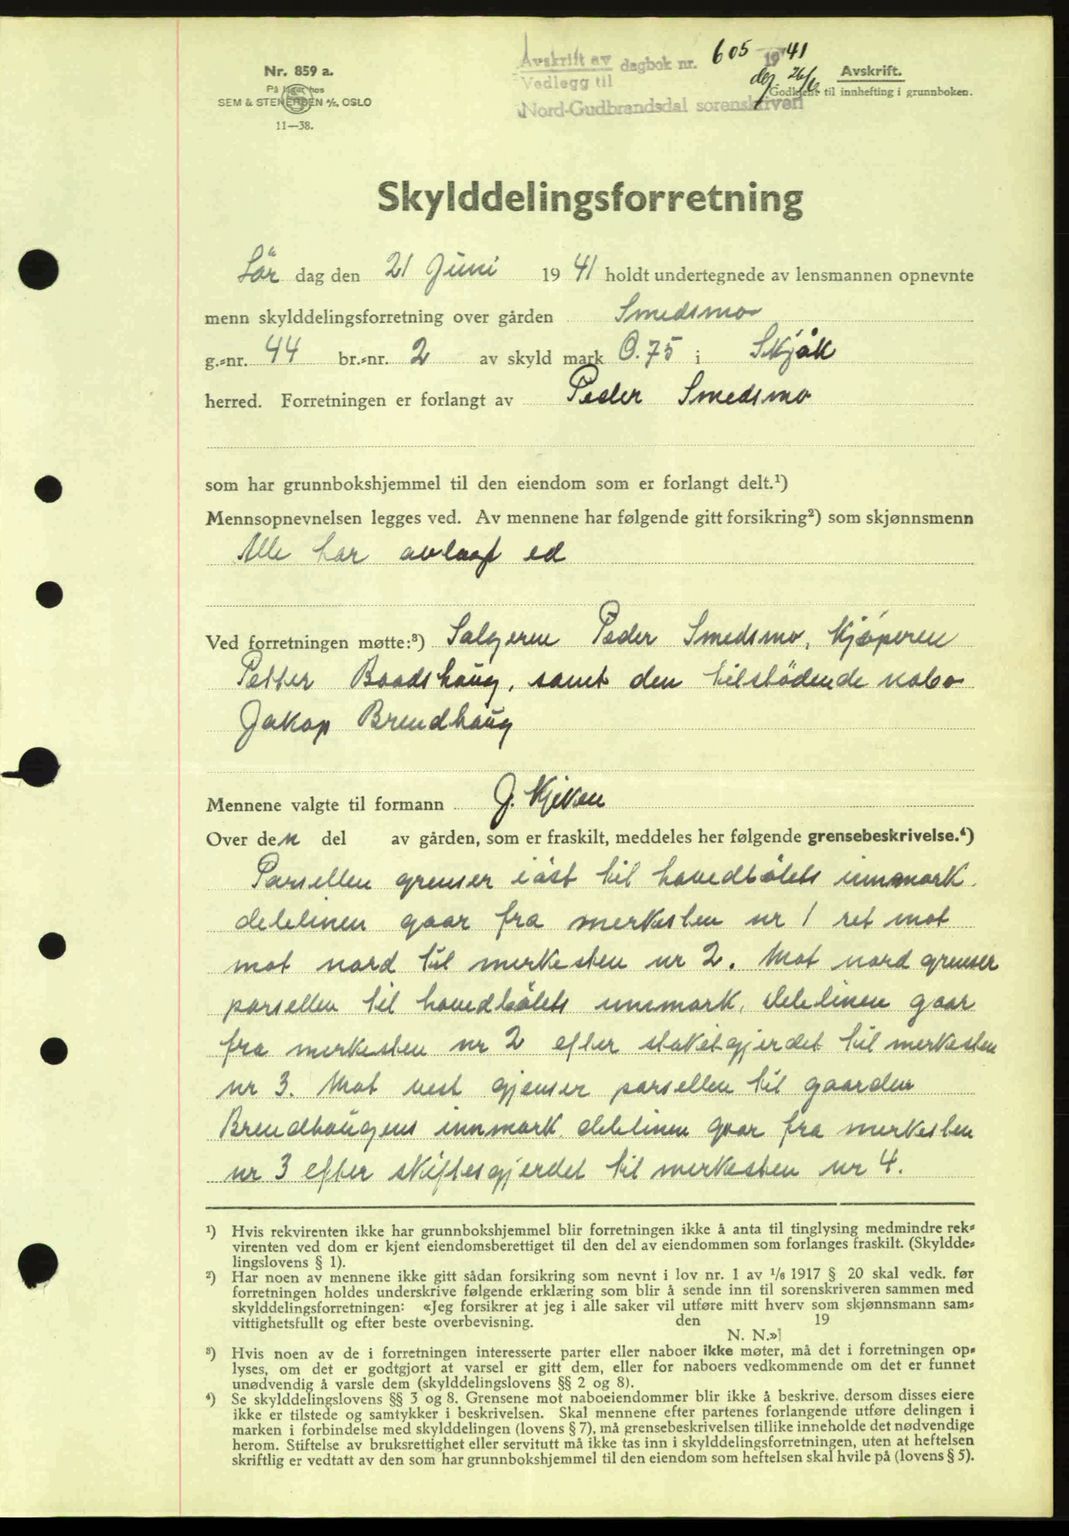 Nr. 859 a.
På lager hos
SEM & STENERSEN A/S, OSLO
11—38.
Avskrift av dagbok nr. 605 1941
Vedlegg til
dag. 26/6
Nord-Gudbrandsdal sorenskriveri
Avskrift.
Godkjent til innhefting i grunnboken.
Skylddelingsforretning
Lör dag den 21 Juni 1941 holdt undertegnede av lensmannen opnevnte
menn skylddelingsforretning over gården Smedsmo
g.-nr. 44 br.-nr. 2 av skyld mark 0.75 i Skjåk
herred. Forretningen er forlangt av Peder Smedsmo
som har grunnbokshjemmel til den eiendom som er forlangt delt.¹)
Mennsopnevnelsen legges ved. Av mennene har følgende gitt forsikring²) som skjønnsmenn
Alle har avlagt ed
Ved forretningen møtte:³) Selgeren Peder Smedsmo, kjøperen
Petter Baadshaug, samt den tilstödende nabo
Jakop Brendhaug
Mennene valgte til formann J. Kjeken
Over den del av gården, som er fraskilt, meddeles her følgende grensebeskrivelse.⁴)
Parsellen grenser i öst til hovedbölets innmark.
delelinen gaar fra merkesten nr 1 ret mot
mot nord til merkesten nr 2. Mot nord grenser
parsellen til hovedbölets innmark, delelinen gaar
fra merkesten nr 2 efter staketgjerdet til merkesten
nr 3. Mot vest gjenser parsellen til gaarden
Brendhaugens innmark. delelinen gaar fra merkesten
nr 3 efter skiftesgjerdet til merkesten nr 4.
¹) Hvis rekvirenten ikke har grunnbokshjemmel blir forretningen ikke å anta til tinglysing medmindre rek-
virenten ved dom er kjent eiendomsberettiget til den del av eiendommen som forlanges fraskilt. (Skyldde-
lingslovens § 1).
²) Har noen av mennene ikke gitt sådan forsikring som nevnt i lov nr. 1 av 1/6 1917 § 20 skal vedk. før
forretningen holdes underskrive følgende erklæring som blir å sende inn til sorenskriveren sammen med
skylddelingsforretningen: «Jeg forsikrer at jeg i alle saker vil utføre mitt hverv som skjønnsmann sam-
vittighetsfullt og efter beste overbevisning. den 19
N. N.»
³) Hvis noen av de i forretningen interesserte parter eller naboer ikke møter, må det i forretningen op-
lyses, om det er godtgjort at varsel er gitt dem, eller for naboers vedkommende om det er funnet
unødvendig å varsle dem (skylddelingslovens §§ 2 og 8).
⁴) Se skylddelingslovens §§ 3 og 8. Grensene mot naboeiendommer blir ikke å beskrive, dersom disses eiere
ikke er tilstede og samtykker i beskrivelsen. Skal mennene efter partenes forlangende utføre delingen i
marken i forbindelse med skylddelingen (lovens § 7), må grensebeskrivelsen tillike inneholde det nødvendige
herom. Stiftelse av bruksrettighet eller servitutt må ikke tas inn i skylddelingsforretningen, uten at heftelsen
skriftlig er vedtatt av den som har grunnbokshjemmel til den eiendom som heftelsen skal hvile på (lovens § 5).